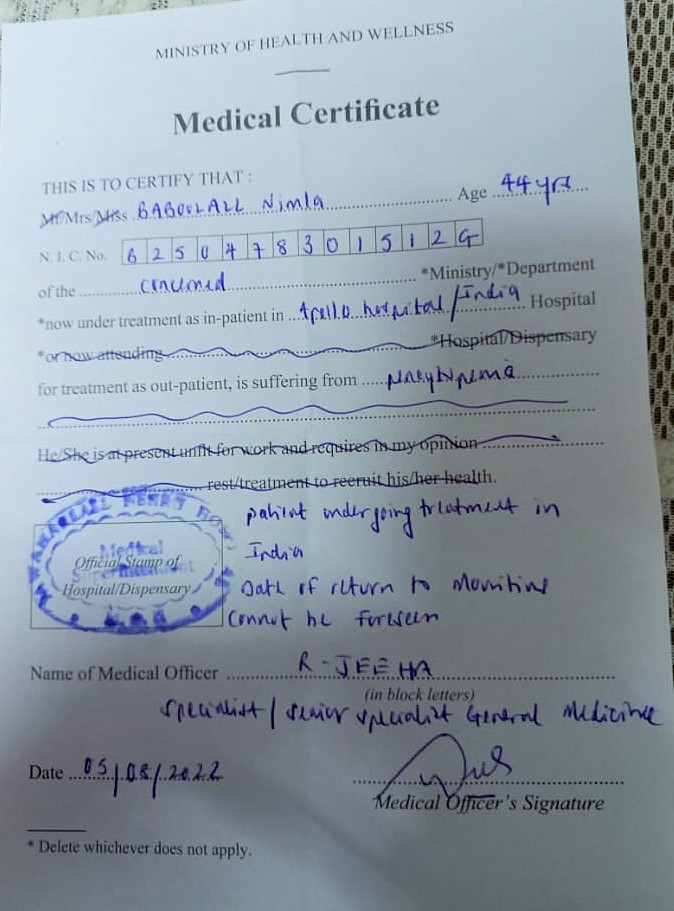 MINISTRY OF HEALTH AND WELLNESS
Medical Certificate
THIS IS TO CERTIFY THAT :
Mr/Mrs/Miss BABOOLALL Nimla Age 44 yrs
N.I.C. No. B 2 5 0 4 7 8 3 0 1 5 1 2 G
of the concerned *Ministry/*Department
*now under treatment as in-patient in Apollo hospital/India Hospital
*or now attending *Hospital/Dispensary
for treatment as out-patient, is suffering from
He/She is at present unfit for work and requires in my opinion
rest/treatment to recruit his/her health.
patient undergoing treatment in
India
Date of return to Mauritius
cannot be foreseen
Medical
Superintendent
Official Stamp of
Hospital/Dispensary
Name of Medical Officer R-JEEHA
(in block letters)
specialist / senior specialist General Medicine
Date 05/08/2022
Medical Officer's Signature
* Delete whichever does not apply.